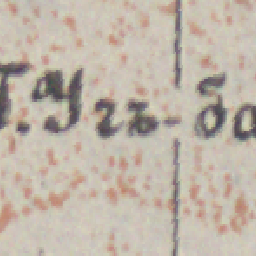 Г.Угъ-ба